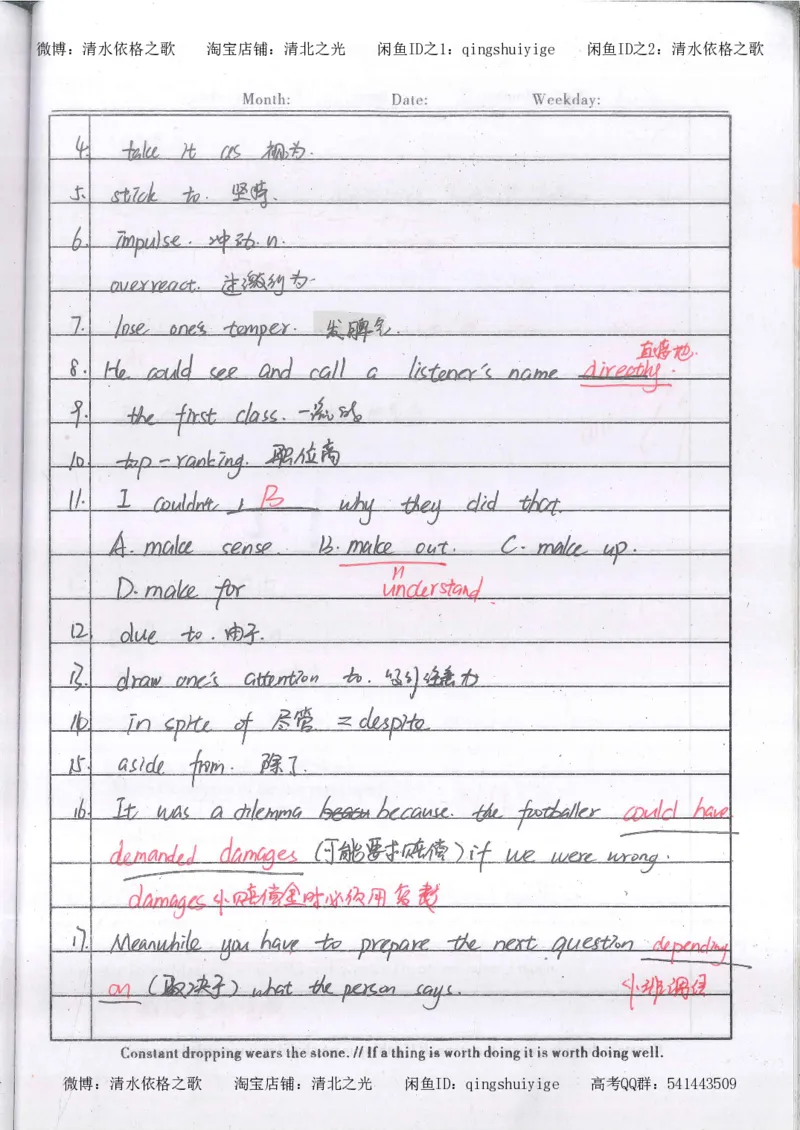 微博：清水依格之歌 淘宝店铺：清北之光 闲鱼ID之1：qingshuiyige 闲鱼ID之2：清水依格之歌
Month: Date: Weekday:
4. take it as 视为.
5. stick to. 坚持.
6. impulse. 冲动. n.
overreact. 过激行为.
7. lose one's temper. 发脾气.
直接地.
8. He could see and call a listener's name directly.
9. the first class. 一流的
10. top-ranking. 职位高
11. I couldn't B why they did that.
A. make sense. B. make out. C. make up.
D. make for understand
12. due to. 由于.
13. draw one's attention to. 吸引注意力
14. in spite of 尽管 = despite
15. aside from. 除了.
16. It was a dilemma because. the footballer could have
demanded damages (可能要求赔偿) if we were wrong.
damages 作赔偿金时必须用复数
17. Meanwhile you have to prepare the next question depending
on (取决于) what the person says.
Constant dropping wears the stone. // If a thing is worth doing it is worth doing well.
微博：清水依格之歌 淘宝店铺：清北之光 闲鱼ID：qingshuiyige 高考QQ群：541443509